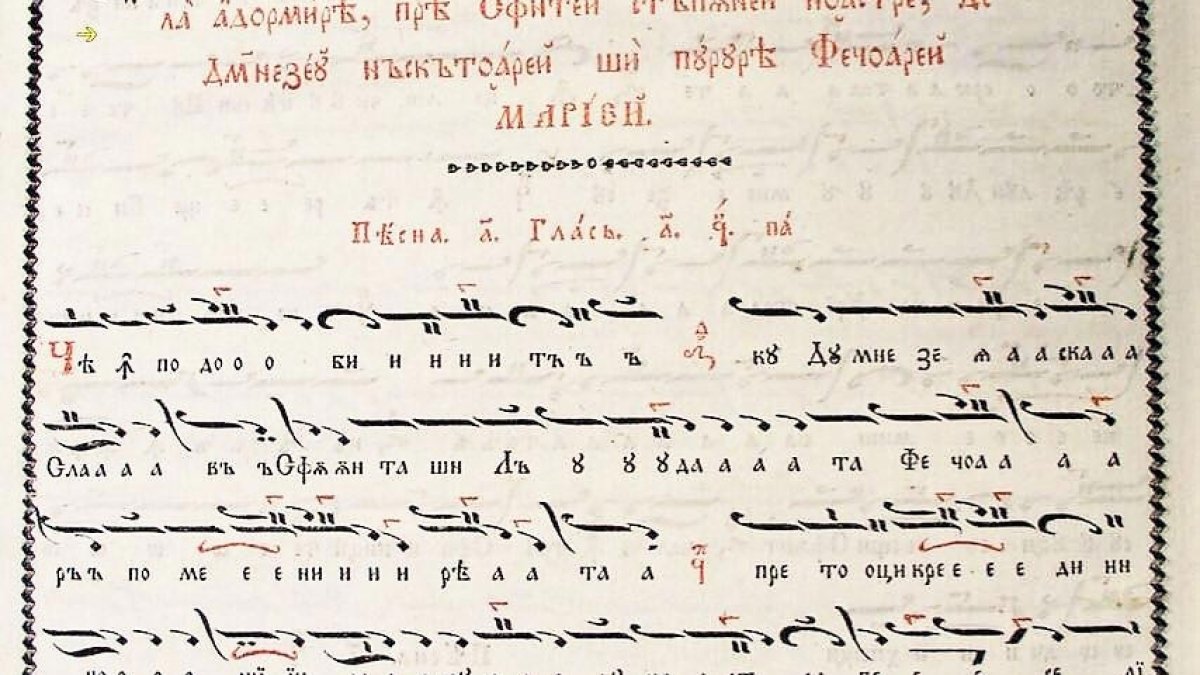 ла а҆дормирѣ, прѣ Сфитей стъпѫней ноастре, де
Дм҃незеꙋ нъскътоа́рей шѝ пꙋ́рꙋрѣ Фечоа́рей
МАРІ́ЕЙ.
Пѣсна. а҃. Гла́съ. а҃. па́
Чѣ ѿ по до о о би и ни и тъ ъ кꙋ Дꙋ мне зе ѫ а а ска а а
Сла а а а въ ъ Сфѫ ѫн та ши Лъ ꙋ ꙋ ꙋ да а а а та Фе чоа а а а
ръ ъ по ме е е ни и ни и рѣ а а та а пре то оци кре е е е е ди ни